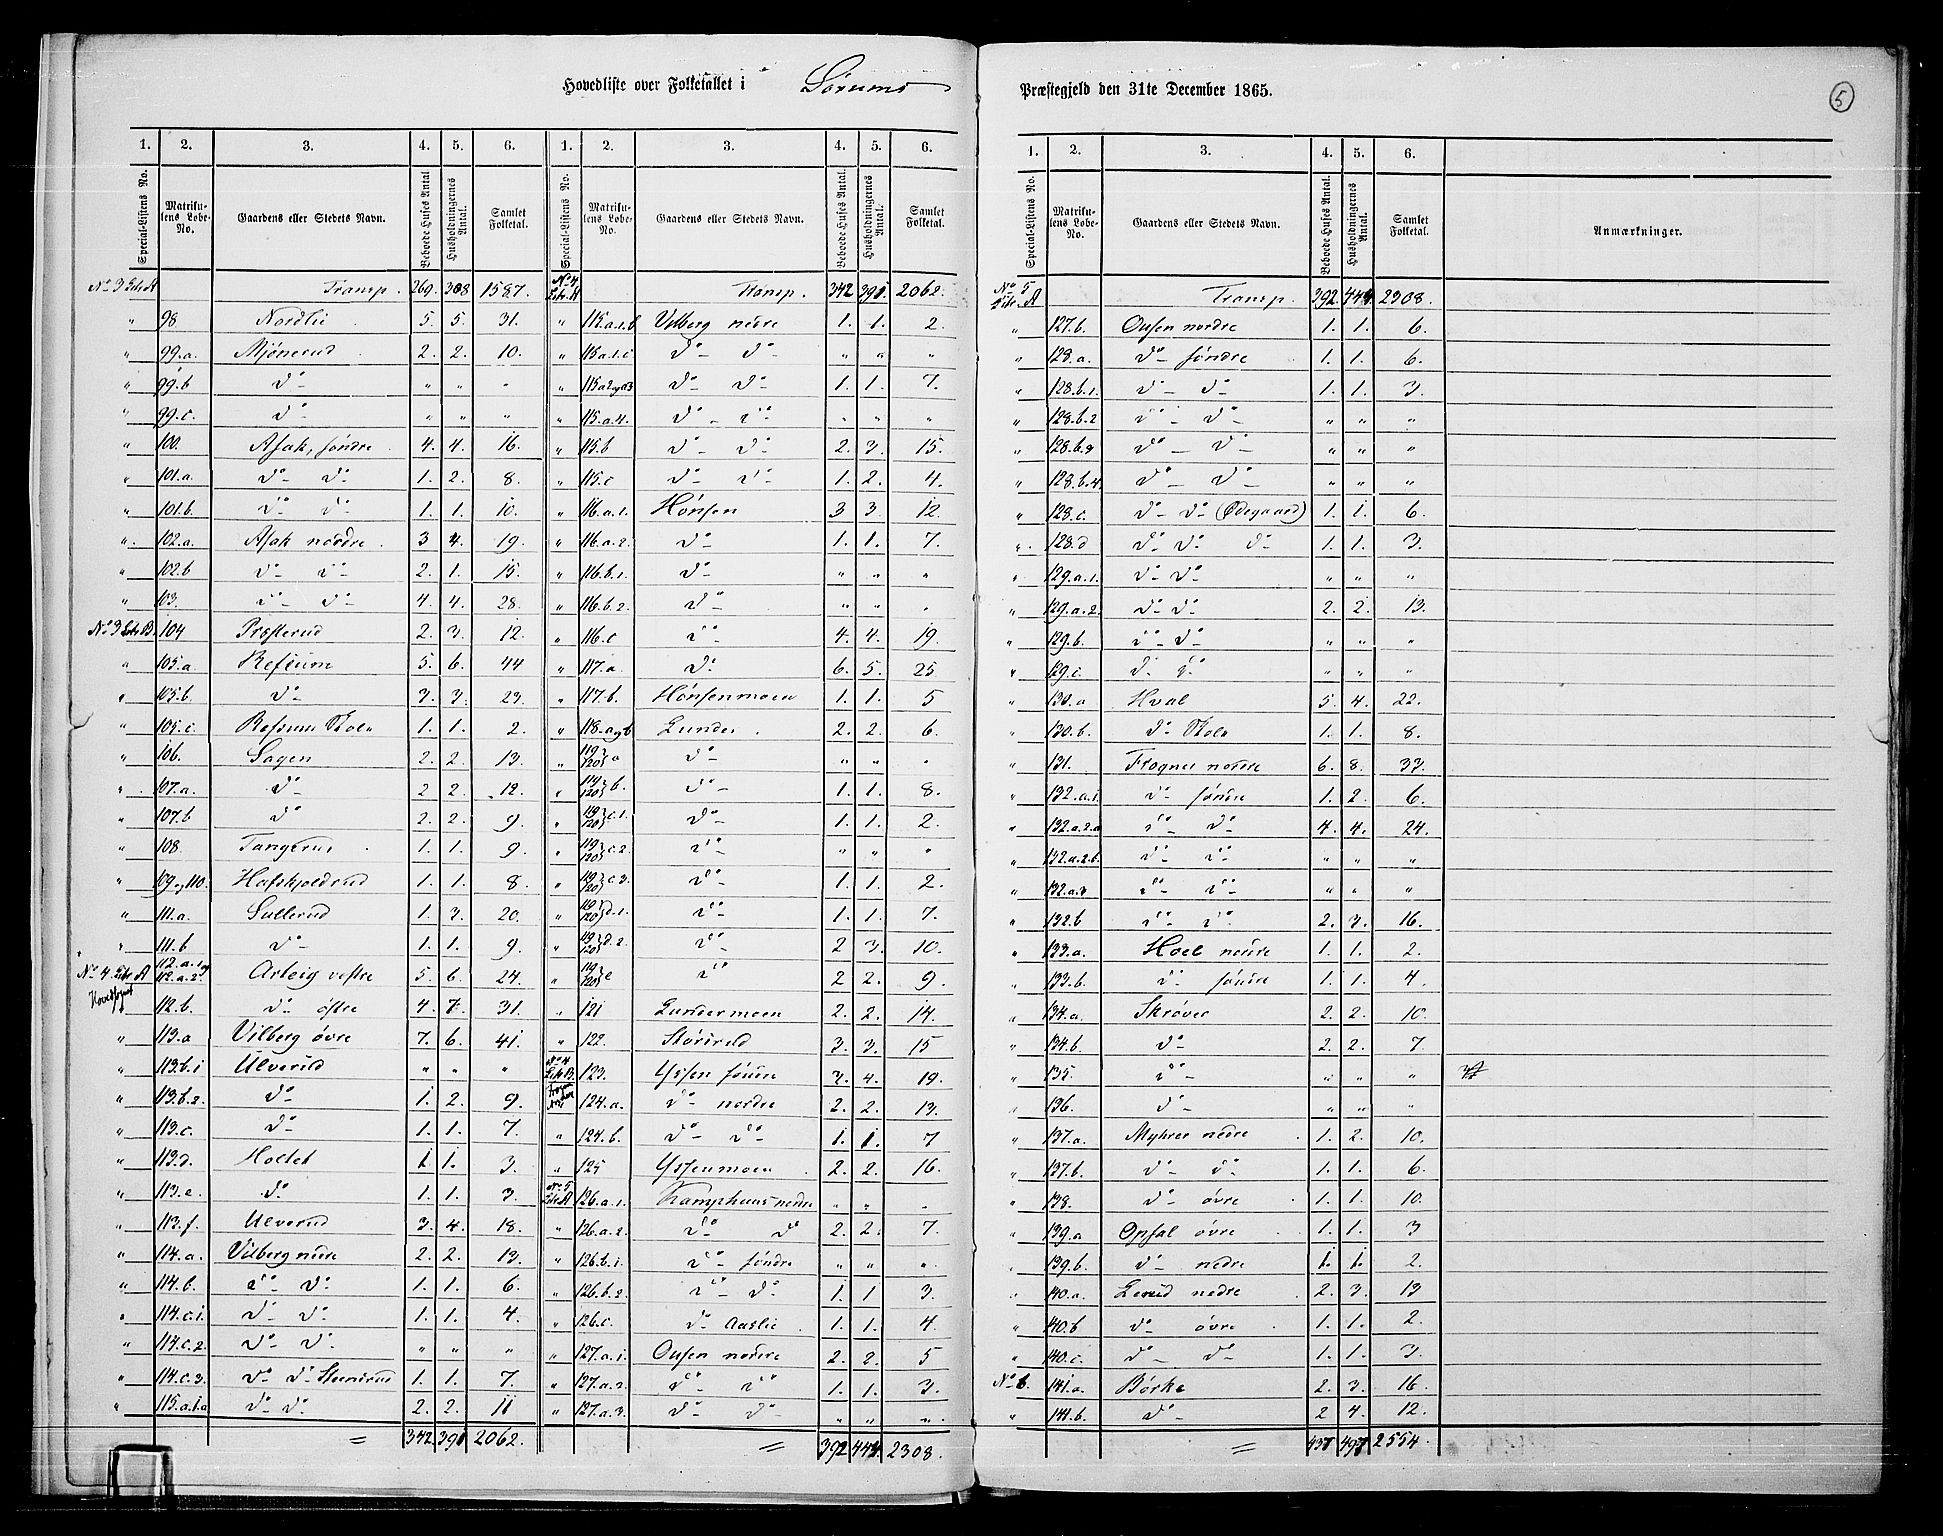 Hovedliste over Folketallet i Sørums Præstegjeld den 31te December 1865. 5
1. 2. 3. 4. 5. 6. 1. 2. 3. 4. 5. 6.
Special-Listens No. Matrikulens Løbe-No. Gaardens eller Stedets Navn. Beboede Huses Antal Husholdningernes Antal. Samlet Folketal. Special-Listens No. Matrikulens Løbe-No. Gaardens eller Stedets Navn. Beboede Huses Antal. Husholdningernes Antal. Samlet Folketal.
No 3 Litr A Transp. 269. 308 1587.
" 98 Nordlie 5. 5. 31.
" 99.a. Mjønerud 2. 2. 10.
" 99.b do " " "
" 99.c. do " " "
" 100. Asak, søndre 4. 4. 16.
" 101.a. do do 1. 2. 8.
" 101.b. do do 1. 1. 10.
" 102.a. Asak nordre 3 4. 19.
" 102.b do do 2. 1. 15.
" 103. do do 4. 4. 28.
No 3 Litr B. 104 Præsterud 2. 3. 12.
" 105.a. Refsum 5. 6. 44
" 105.b. do 3. 3. 23.
" 105.c. Refsum Skole 1. 1. 2.
" 106. Sagen 2. 2. 13.
" 107.a. do 2 2. 12.
" 107.b do 2. 2. 9.
" 108 Tangerud 1. 1. 9.
" 109 og 110. Hafskjoldrud 1. 1. 8.
" 111.a. Sullerud 1. 3. 20.
" 111.b do 1. 1. 9.
No 4 Litr A 112.a.1 og 112.a.2. Arteig vestre 5. 6. 24.
Hovedsognet 112.b. do østre 4. 7. 31.
" 113.a Vilberg øvre 7. 6. 41.
" 113.b.1 Ulverud " " "
" 113.b.2. do 1. 2. 9.
" 113.c. do 1. 1. 7.
" 113.d. Holtet 1 1. 3.
" 113.e. do 1. 1. 3.
" 113.f. Ulverud 3. 4. 18.
" 114.a. Vilberg nedre 2. 2. 13.
" 114.b. do do 1. 1. 6.
" 114.c.1. do do 1. 1. 4.
" 114.c.2. do do " " "
" 114.c.3. do do 1. 1. 7.
" 115.a.1.a do do 2. 2. 11
= 342 391 2062.
No 4 Litr A Transp. 342 391. 2062.
" 115.a.1.b Vilberg nedre 1. 1. 2.
" 115.a.1.c do do " " "
" 115 a 2 og a 3 do do 1. 1. 7.
" 115.a.4. do do " " "
" 115.b do do 2. 3. 15.
" 115.c do do 1. 2. 4.
" 116.a.1. Hønsen 3 3. 12.
" 116.a.2. do 1. 1. 7.
" 116.b.1. do " " "
" 116.b.2. do " " "
" 116.c do 4. 4. 19.
" 117.a. do 6. 5. 25
" 117.b. Hønsenmoen 1. 1. 5
" 118.a og b Lunder 2. 2. 6.
" 119 120 } a do " " "
" 119 120 } b. do 1. 1. 8.
" 119 120 } c.1. do 1. 1. 2.
" 119 120 } c.2. do " " "
" 119 120 } c.3. do 1. 1. 2.
" 119 120 } d.1. do 1. 1. 7.
" 119 120 } d.2. do 2 3. 10.
" 119 120 } e do 2 2. 9.
" 121 Lundermoen 2. 2. 14.
" 122. Størsrud 3. 3. 15
No 4 Litr B. 123. Yssen søndre 3. 4. 19.
124.a. do nordre 2. 2. 13.
" 124.b. do do 1. 1. 7
" 125 Yssenmoen 2. 2. 16.
No 5 Litr A 126.a.1. Kamphuus nedre " " "
" 126.a.2. do do 2 2. 7.
" 126.b.1. do søndre " " "
" 126.b.2. do do 1. 1 3.
" 126.c. do Aaslie 1. 1. 4.
" 127.a.1. Ousen nordre 2. 2. 5
" 127.a.2. do do 1. 1. 3.
" 127.a.3. do do " " "
= 392 443. 2308.
1. 2. 3. 4. 5. 6.
Special-Listens No. Matrikulens Løbe-No. Gaardens eller Stedets Navn. Beboede Huses Antal. Husholdningernes Antal. Samlet Folketal. Anmærkninger.
No 5 Litr. A Transp. 392. 443 2308.
" 127.b. Ousen nordre 1. 1. 6.
" 128.a. do søndre 1. 1. 6.
" 128.b.1. do do 1. 1. 3.
" 128.b.2 do do " " "
" 128.b.3 do do " " "
" 128.b.4. do do " " "
" 128.c. do do (Ødegaard) 1. 1. 6.
" 128.d do do do 1. 1. 3.
" 129.a.1. do do " " "
" 129.a.2. do do 2. 2. 13.
" 129.b. do do " " "
" 129.c. do do " " "
" 130.a Hval 5. 4. 22.
" 130.b. do Skole 1. 1. 8.
" 131. Frogner nordre 6. 8. 33.
" 132.a.1. do søndre 1. 2. 6.
" 132.a.2.a do do 4. 4. 24.
" 132.a.2.b. do do " " "
" 132.a.3 do do " " "
" 132.b do do 2. 3. 16.
" 133.a. Hoel nedre 1. 1. 2.
" 133.b. do søndre 1. 1. 4.
" 134.a. Skrøver 2. 2. 10.
" 134.b. do 2. 2. 7
" 135. do " " "
" 136. do " " "
" 137.a. Myhrer nedre 1. 2. 10.
" 137.b. do do 1. 1. 6.
" 138. do øvre 1. 1. 10.
" 139.a Opsal øvre 1. 1. 3
" 139.b. do nedre 1. 1. 2.
" 140.a. Lerud nedre 2. 3. 13
" 140.b do øvre 1. 1. 2.
" 140.c. do do 1. 1. 3.
No 6. 141.a. Børke 2. 3. 16.
" 141.b. do 2 4. 12.
= 437 497 2554.